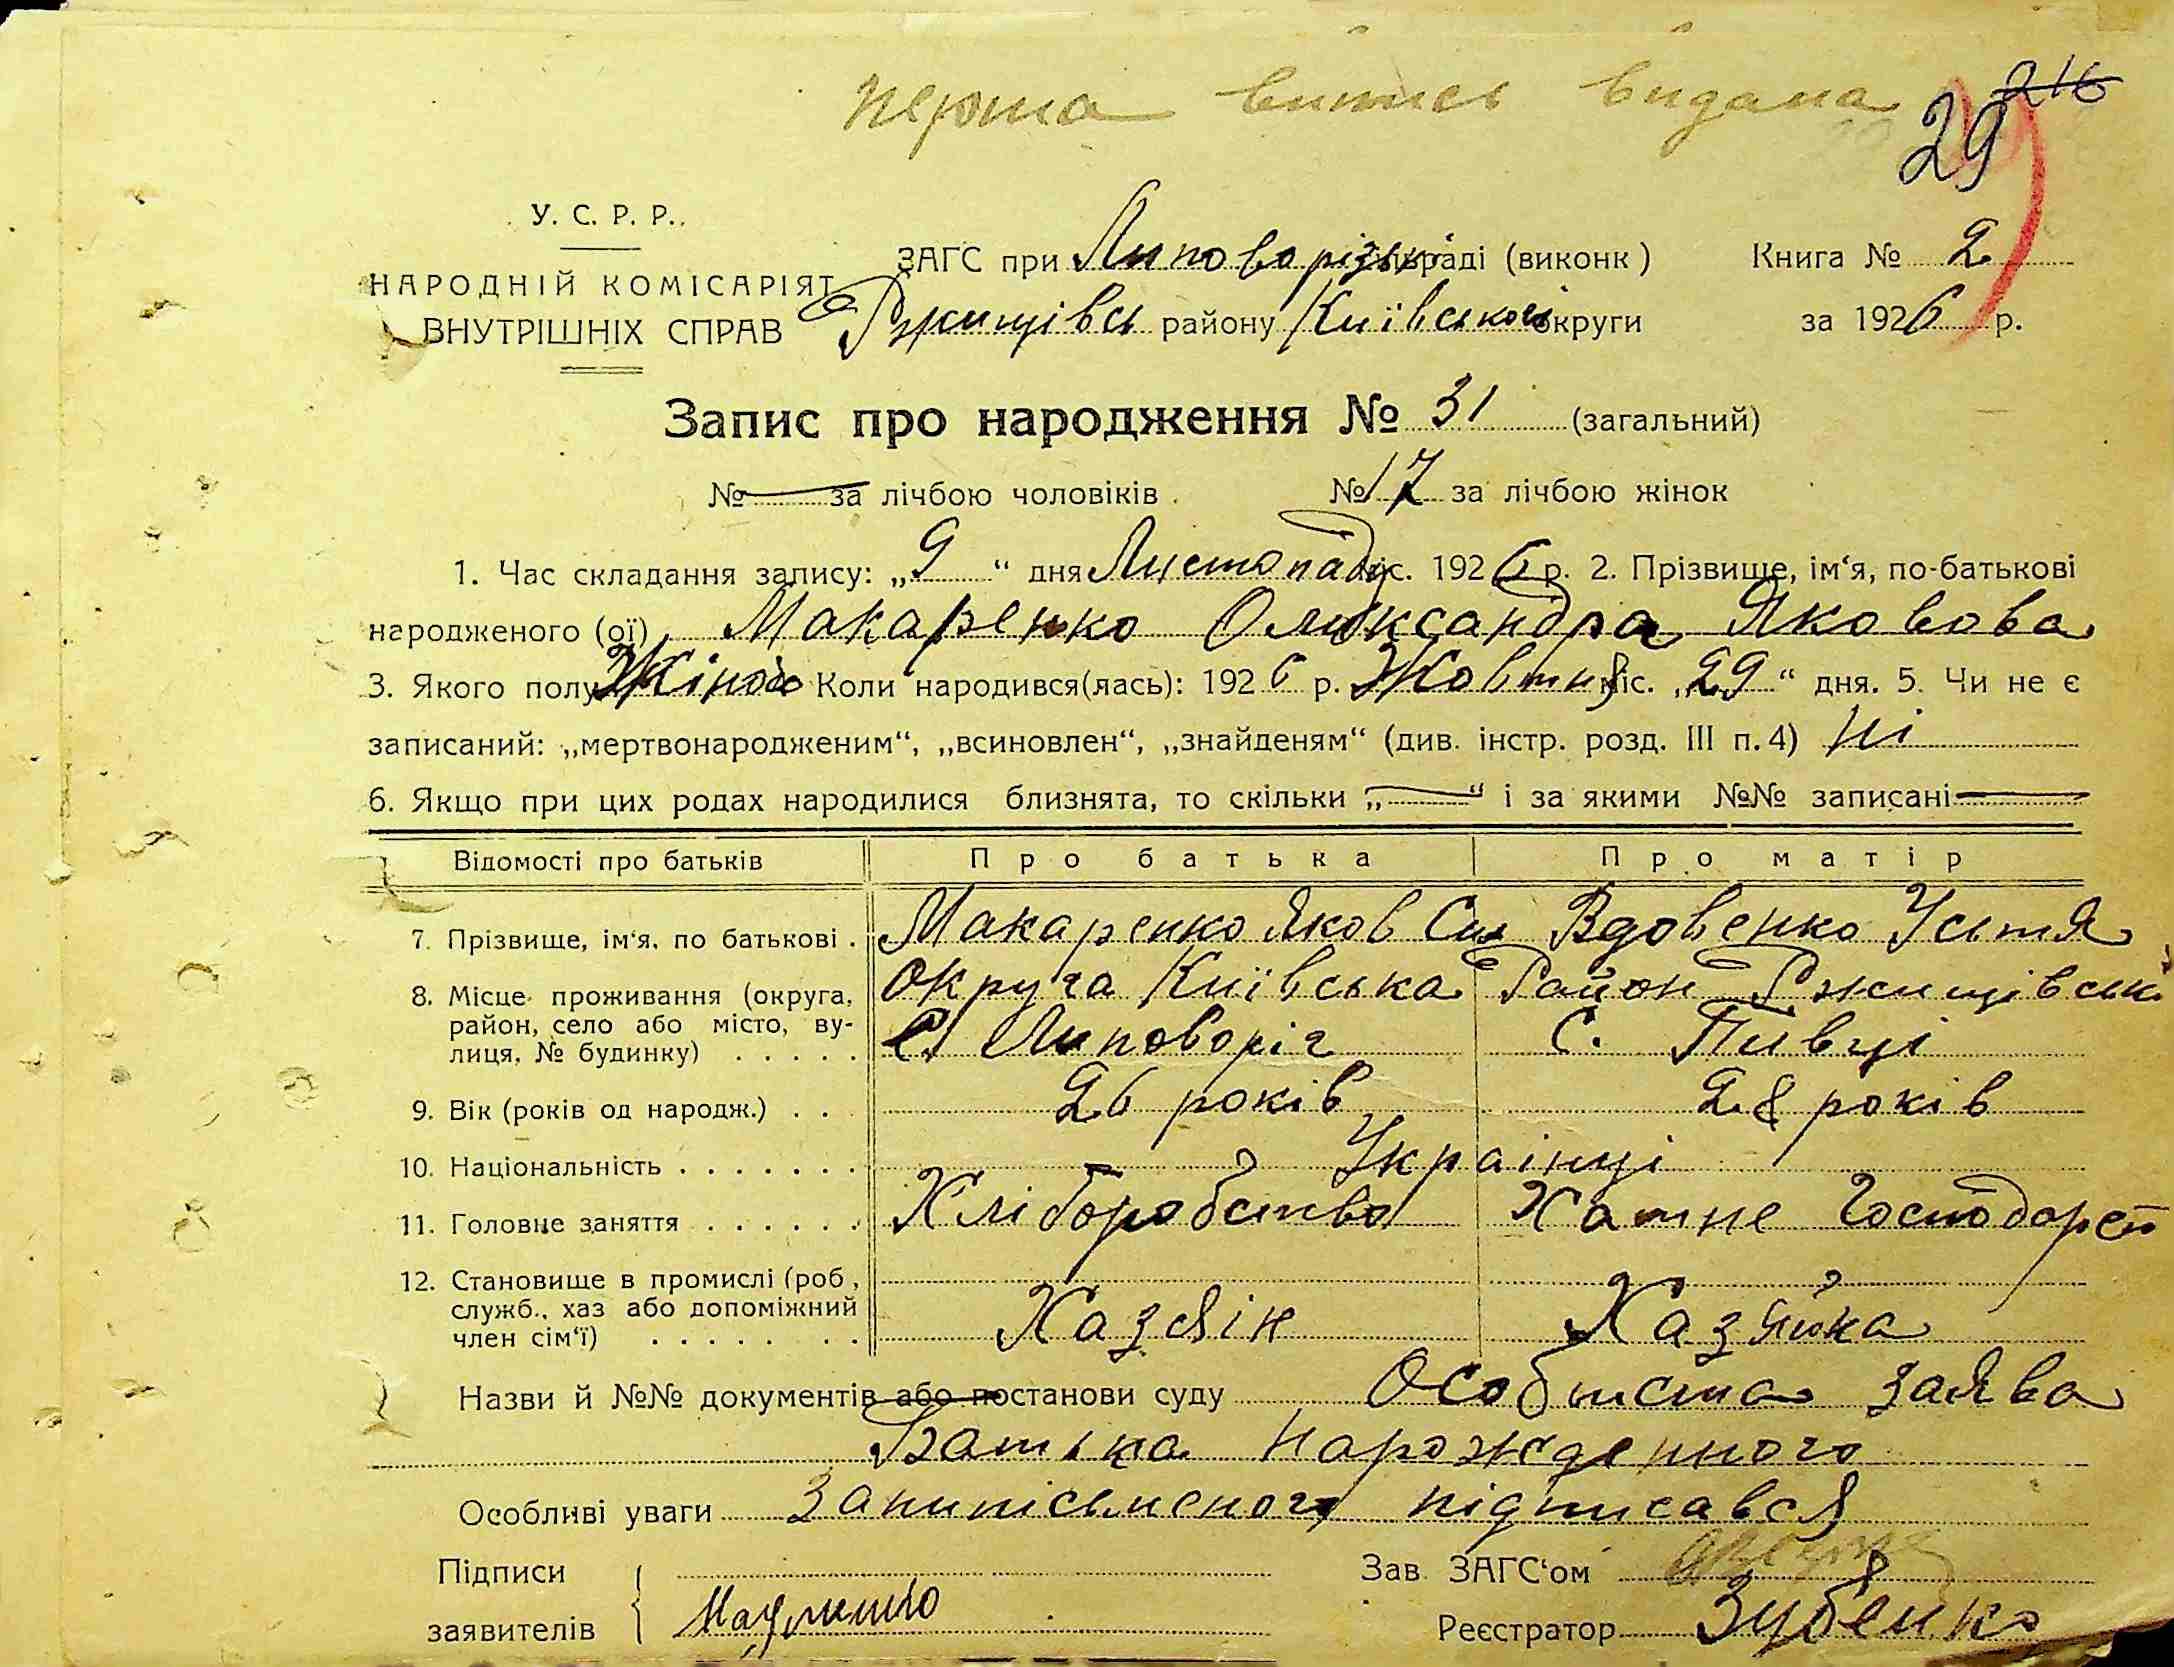 перша витись видана
216
29
У. С. Р. Р.
НАРОДНІЙ КОМІСАРІЯТ
ВНУТРІШНІХ СПРАВ
ЗАГС при Липоворізькі раді (виконк)
Книга № 2
Ржищівсь району Київської округи
за 1926 р.
Запис про народження № 31 (загальний)
№ — за лічбою чоловіків № 17 за лічбою жінок
1. Час складання запису: „9“ дня Листопад міс. 1926 р. 2. Прізвище, ім'я, по-батькові
народженого (ої) Макаренко Олександра Яковова
3. Якого полу Жіноч Коли народився(лась): 1926 р. Жовтня міс. „29“ дня. 5. Чи не є
записаний: „мертвонародженим“, „всиновлен“, „знайденям“ (див. інстр. розд. III п. 4) Ні
6. Якщо при цих родах народилися близнята, то скільки „—“ і за якими №№ записані —
Відомості про батьків Про батька Про матір
7. Прізвище, ім'я, по батькові . Макаренко Яков Сил Вдовенко Устя
8. Місце проживання (округа, район, село або місто, ву- лиця, № будинку) . . . . . Округа Київська Район Ржищівськ
с. Липоворіг С. Пивці
9. Вік (років од народж.) . . 26 років 28 років
10. Національність . . . . . . . Українці
11. Головне заняття . . . . . . Хліборобство Хатне Господарст
12. Становище в промислі (роб, служб., хаз або допоміжний член сім'ї) . . . . . . . Хазяін Хазяйка
Назви й №№ документів або постанови суду Особиста заява
Батька нарожденного
Особливі уваги За неписьменого підписався
Підписи
заявителів
Зав. ЗАГС'ом
Реєстратор Зубенко